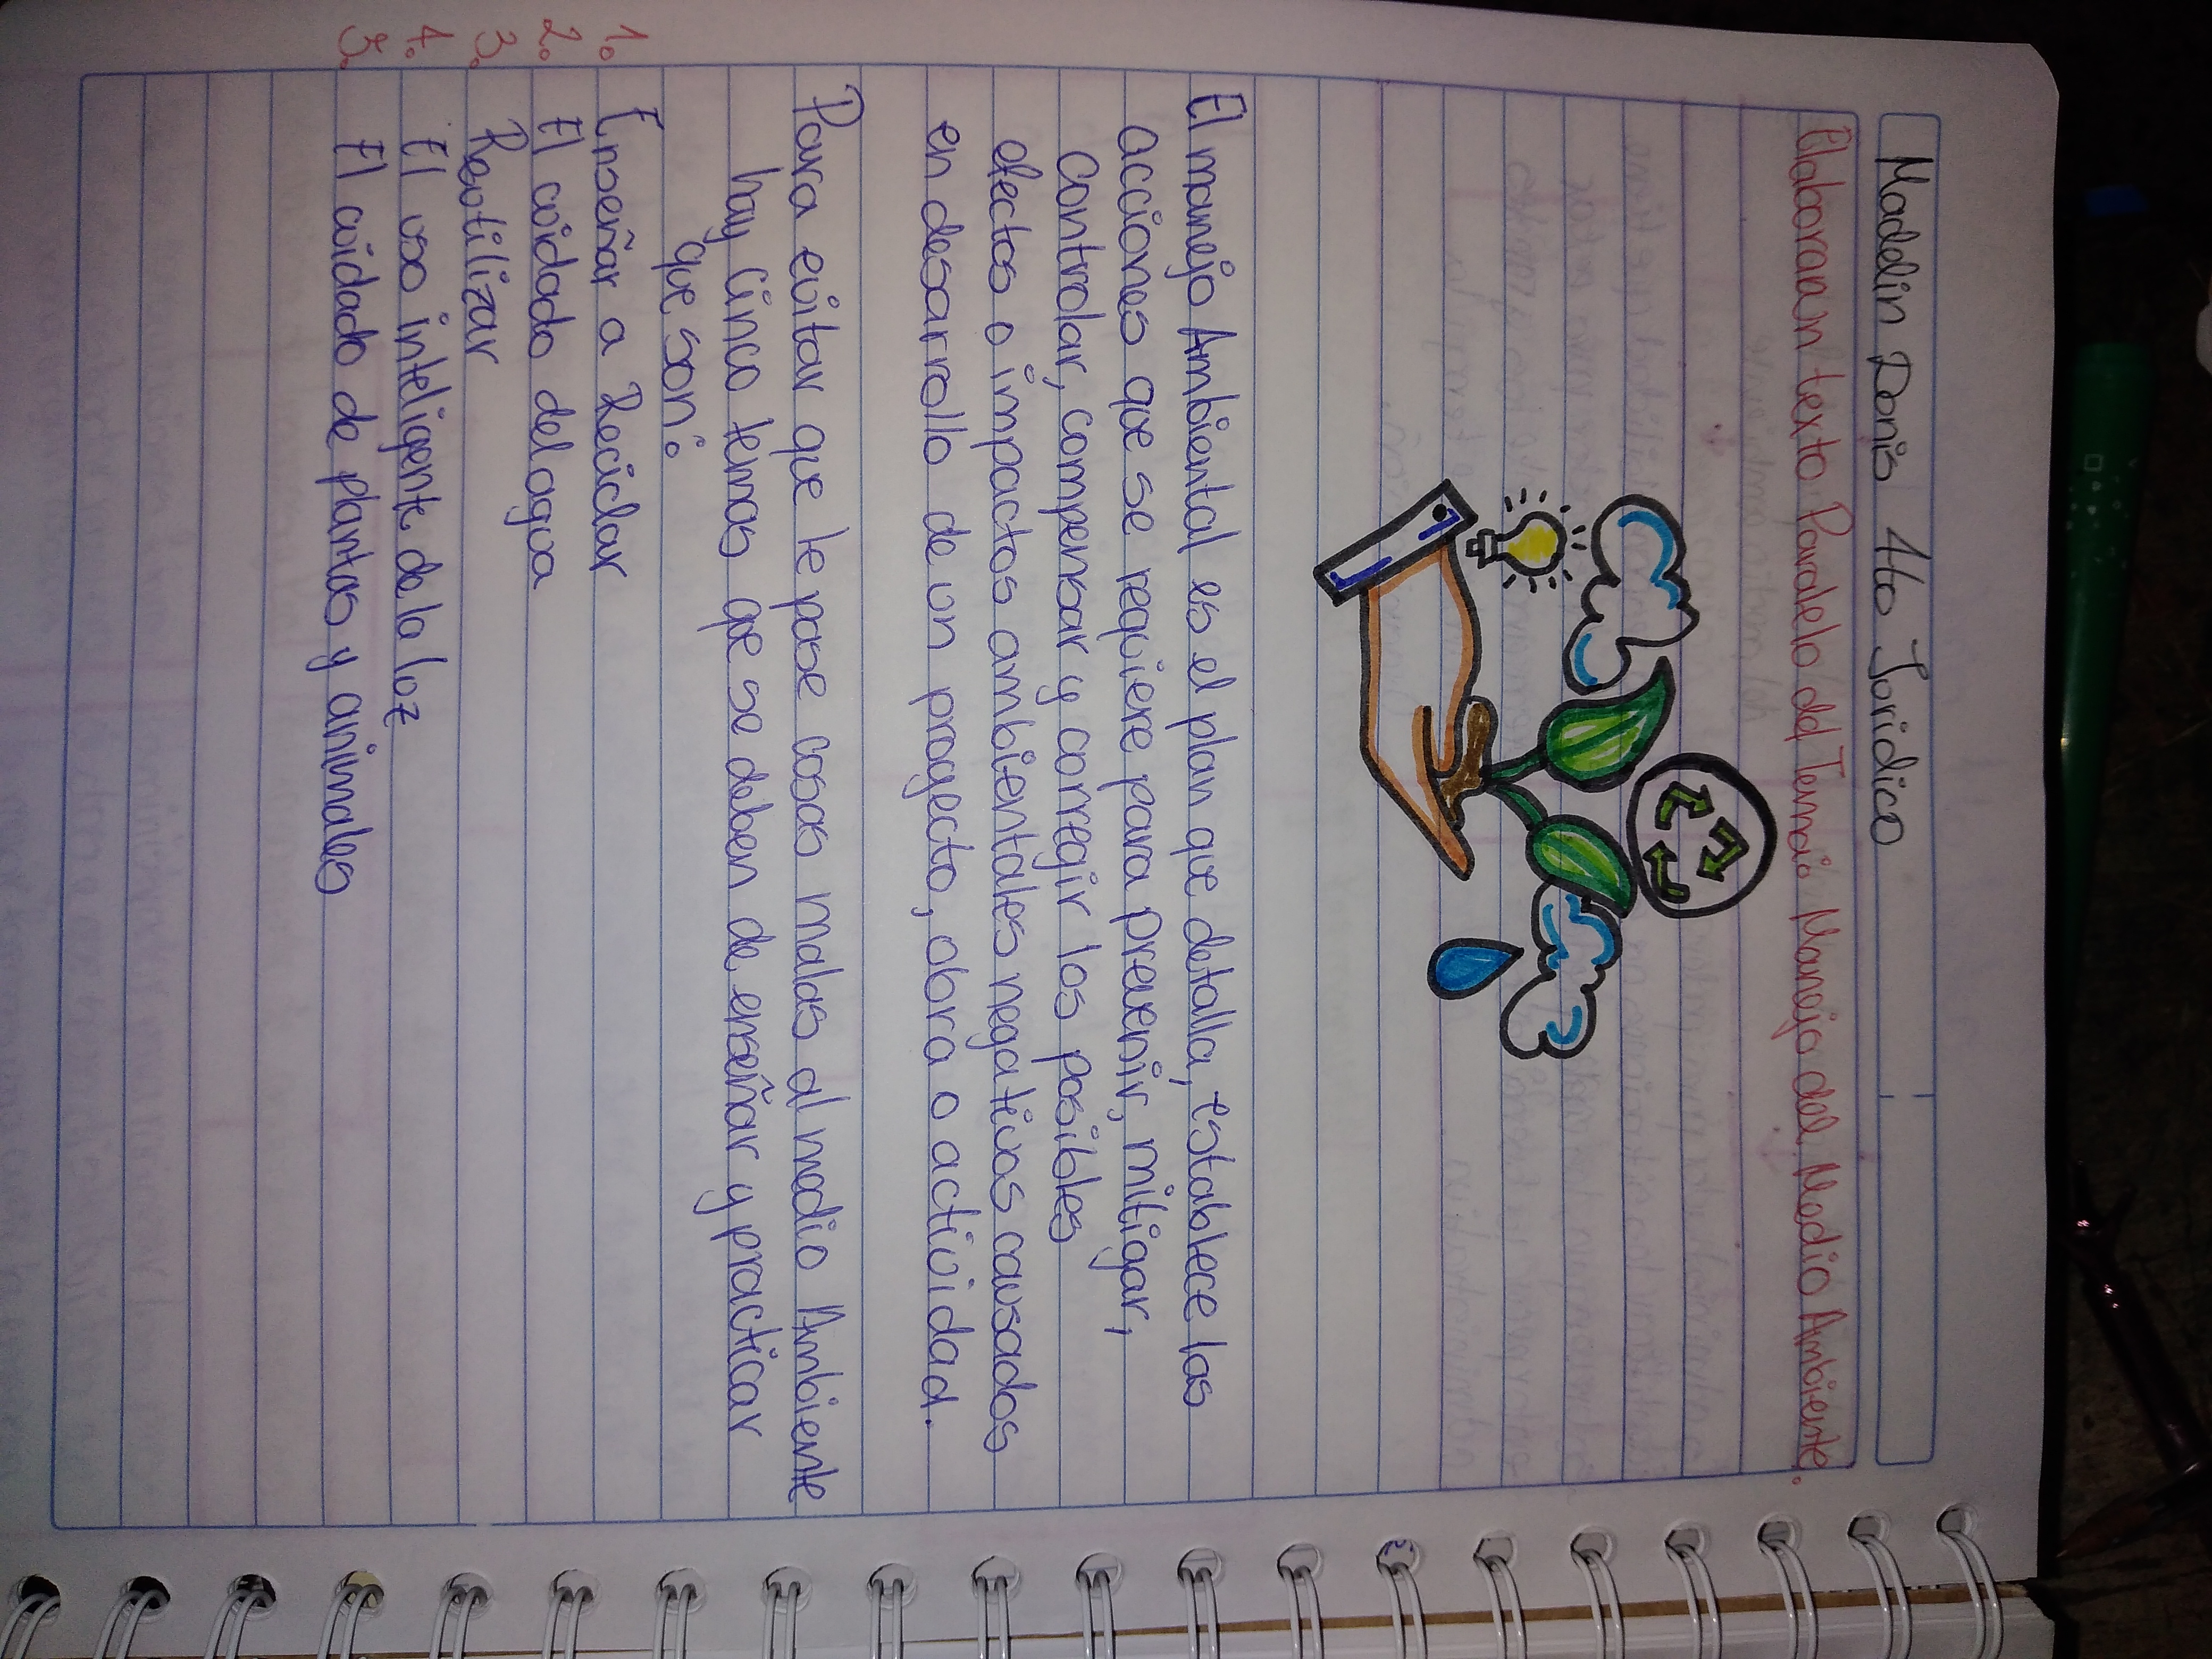 Madelin Donis 4to Juridico
Elaboraran un texto Paralelo del Temario Manejo del Medio Ambiente.
El manejo Ambiental es el plan que detalla, establece las
acciones que se requiere para prevenir, mitigar,
Controlar, compensar y corregir los posibles
efectos o impactos ambientales negativos causados
en desarrollo de un proyecto, obra o actividad.
Para evitar que le pase cosas malas al medio Ambiente
hay Cinco temas que se deben de enseñar y practicar
que son:
1. Enseñar a Reciclar
2. El cuidado del agua
3. Reutilizar
4. El uso inteligente de la luz
5. El cuidado de plantas y animales